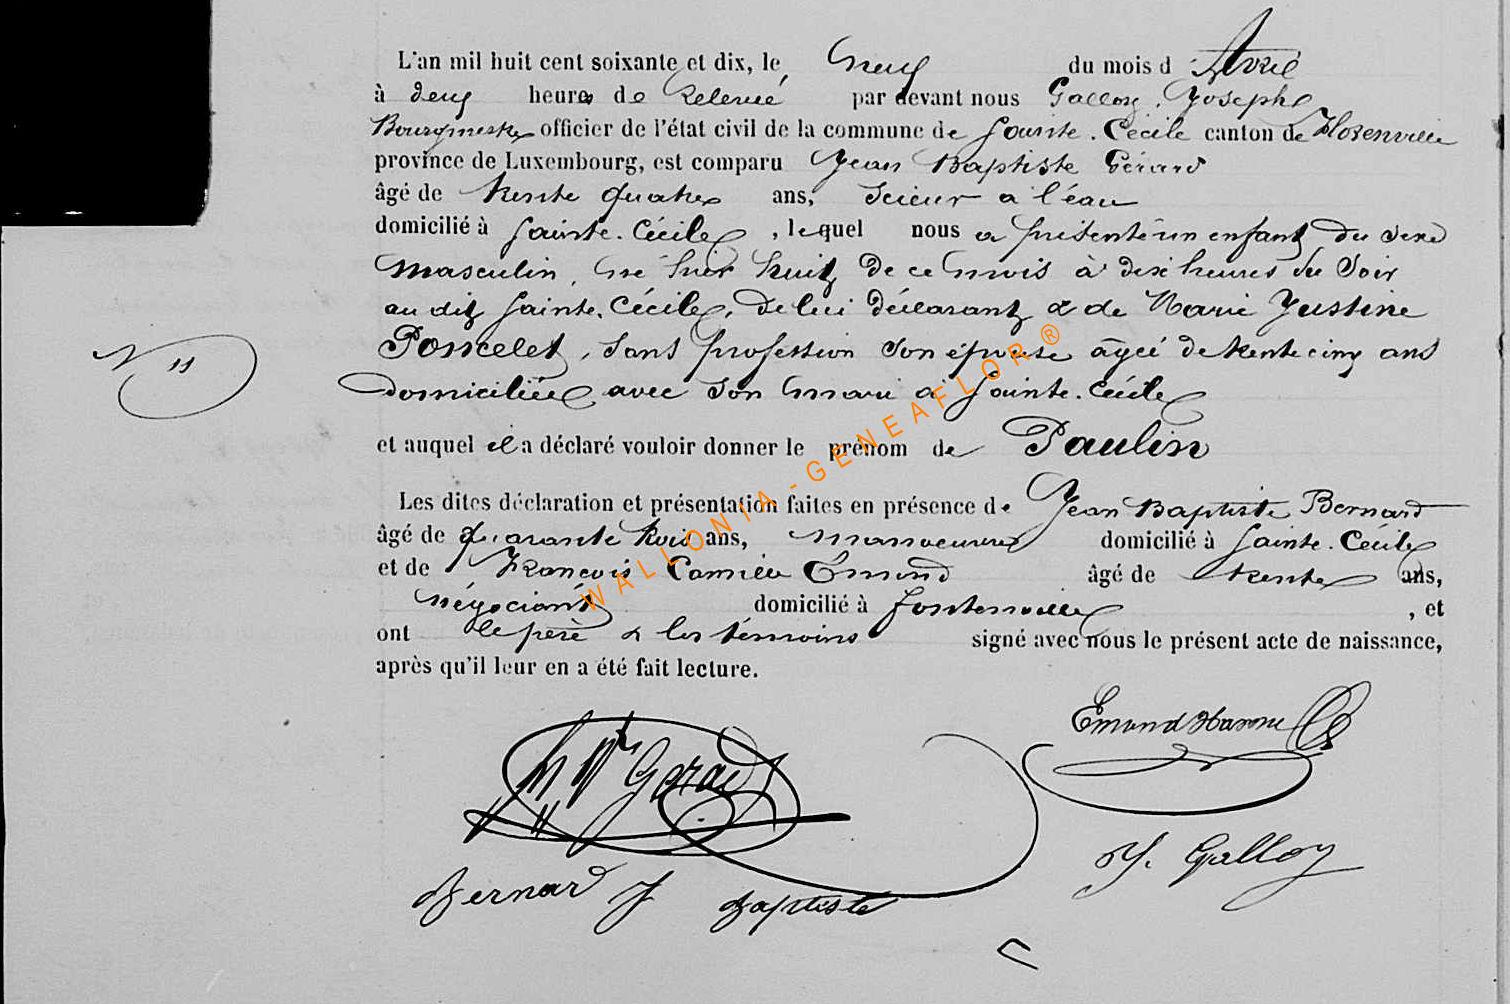 L'an mil huit cent soixante et dix, le neuf du mois d'Avril
à deux heures de Relevée par devant nous Galloy, Joseph
Bourgmestre officier de l'état civil de la commune de Sainte-Cécile canton de Florenville
province de Luxembourg, est comparu Jean Baptiste Gérard
âgé de trente quatre ans, scieur à l'eau
domicilié à Sainte-Cécile, lequel nous a présenté un enfant du sexe
masculin, né hier huit de ce mois à dix heures du soir
au dit Sainte-Cécile, de lui déclarant & de Marie Justine
N 11
Poncelet, sans profession son épouse âgée de trente cinq ans
domiciliée avec son mari à Sainte-Cécile
et auquel il a déclaré vouloir donner le prénom de Paulin
Les dites déclaration et présentation faites en présence de Jean Baptiste Bernard
âgé de quarante trois ans, manoeuvre domicilié à Sainte-Cécile
et de François Camille Émond âgé de trente ans,
négociant domicilié à Fontenoille, et
ont le père & les témoins signé avec nous le présent acte de naissance,
après qu'il leur en a été fait lecture.
WALLONIA-GENEAFLOR ®
Emond
Gerard
J. Galloy
Bernard J Baptiste